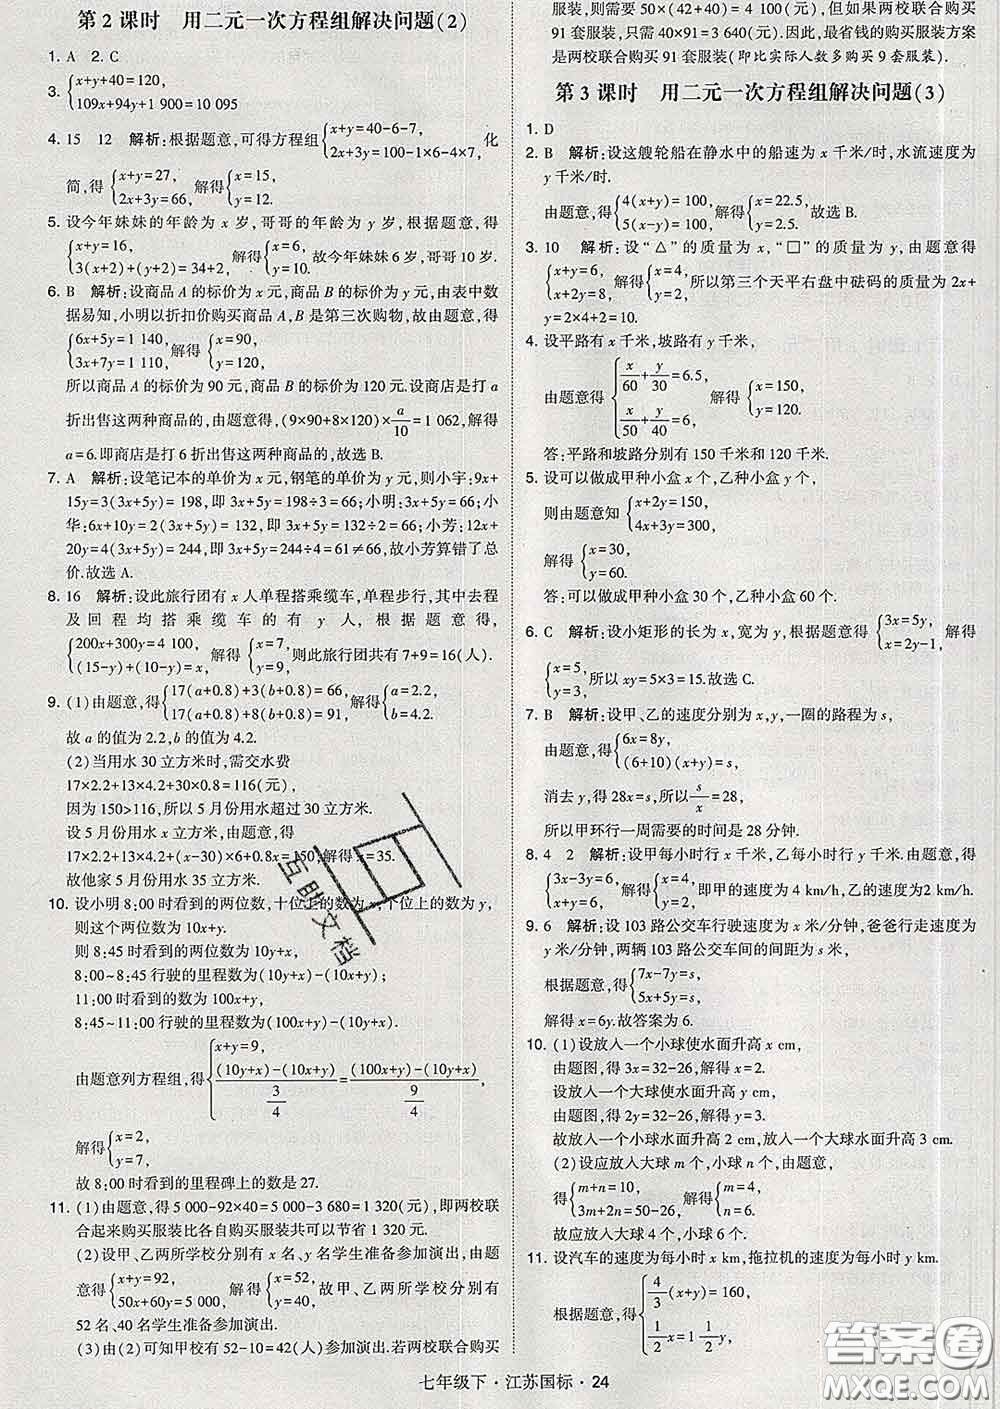 第 2 课时　用二元一次方程组解决问题(2)
1. A　2. C
3. {x+y+40=120,
109x+94y+1 900=10 095
4. 15　12　解析:根据题意,可得方程组{x+y=40-6-7,
2x+3y=100-1×6-4×7, 化
简,得{x+y=27,
2x+3y=66, 解得{x=15,
y=12.
5. 设今年妹妹的年龄为 x 岁,哥哥的年龄为 y 岁,根据题意得
{x+y=16,
3(x+2)+(y+2)=34+2, 解得{x=6,
y=10. 故今年妹妹 6 岁,哥哥 10 岁.
6. B　解析:设商品 A 的标价为 x 元,商品 B 的标价为 y 元,由表中数
据易知,小明以折扣价购买商品 A,B 是第三次购物,故由题意,得
{6x+5y=1 140,
3x+7y=1 110, 解得{x=90,
y=120.
所以商品 A 的标价为 90 元,商品 B 的标价为 120 元.设商店是打 a
折出售这两种商品的,由题意得,(9×90+8×120)×a/10=1 062,解得
a=6.即商店是打 6 折出售这两种商品的,故选 B.
7. A　解析:设笔记本的单价为 x 元,钢笔的单价为 y 元,则小宇:9x+
15y=3(3x+5y)=198,即 3x+5y=198÷3=66;小明:3x+5y=66;小
华:6x+10y=2(3x+5y)=132,即 3x+5y=132÷2=66;小芳:12x+
20y=4(3x+5y)=244,即 3x+5y=244÷4=61≠66,故小芳算错了总
价.故选 A.
8. 16　解析:设此旅行团有 x 人单程搭乘缆车,单程步行,其中去程
及回程均搭乘缆车的有 y 人,根据题意得,
{200x+300y=4 100,
(15-y)+(10-y)=x, 解得{x=7,
y=9, 则此旅行团共有 7+9=16(人).
9. (1)由题意,得{17(a+0.8)+3(b+0.8)=66,
17(a+0.8)+8(b+0.8)=91, 解得{a=2.2,
b=4.2.
故 a 的值为 2.2,b 的值为 4.2.
(2)当用水 30 立方米时,需交水费
17×2.2+13×4.2+30×0.8=116(元),
因为 150>116,所以 5 月份用水超过 30 立方米.
设 5 月份用水 x 立方米,由题意,得
17×2.2+13×4.2+(x-30)×6+0.8x=150,解得 x=35.
故他家 5 月份用水 35 立方米.
10. 设小明 8:00 时看到的两位数,十位 为 ,个位上的数为 y,
则这个两位数为 10x+y.
则 8:45 时看到的两位数为 10y+x,
8:00~8:45 行驶的里程数为(10y+x)-(10x+y),
11:00 时看到的数为 100x+y,
8:45~11:00 行驶的里程数为(100x+y)-(10y+x).
由题意列方程组,得{x+y=9,
((10y+x)-(10x+y))/(3/4)=((100x+y)-(10y+x))/(9/4),
解得{x=2,
y=7,
故 8:00 时看到的里程碑上的数是 27.
11. (1)由题意,得 5 000-92×40=5 000-3 680=1 320(元),即两校联
合起来购买服装比各自购买服装共可以节省 1 320 元.
(2)设甲、乙两所学校分别有 x 名、y 名学生准备参加演出,由题
意得{x+y=92,
50x+60y=5 000, 解得{x=52,
y=40, 故甲、乙两所学校分别有
52 名、40 名学生准备参加演出.
(3)由(2)可知甲校有 52-10=42(人)参加演出.若两校联合购买
服装,则需 50×(42+40)=4 100(元),但如果两校联合购买
91 套服装,只需 40×91=3 640(元).因此,最省钱的购买服装方案
是两校联合购买 91 套服装(即比实际人数多购买 9 套服装).
第 3 课时　用二元一次方程组解决问题(3)
1. D
2. B　解析:设这艘轮船在静水中的船速为 x 千米/时,水流速度为
y 千米/时.
由题意,得{4(x+y)=100,
5(x-y)=100, 解得{x=22.5,
y=2.5. 故选 B.
3. 10　解析:设“△”的质量为 x,“□”的质量为 y,由题意得
{x+y=6,
x+2y=8, 解得{x=4,
y=2, 所以第三个天平右盘中砝码的质量为 2x+
y=2×4+2=10.
4. 设平路有 x 千米,坡路有 y 千米,
由题意得{x/60+y/30=6.5,
x/50+y/40=6, 解得{x=150,
y=120.
答:平路和坡路分别有 150 千米和 120 千米.
5. 设可以做成甲种小盒 x 个,乙种小盒 y 个,
则由题意知{x+2y=150,
4x+3y=300,
解得{x=30,
y=60.
答:可以做成甲种小盒 30 个,乙种小盒 60 个.
6. C　解析:设小矩形的长为 x,宽为 y,根据题意得{3x=5y,
x=2y-1, 解得
{x=5,
y=3, 所以 xy=5×3=15.故选 C.
7. B　解析:设甲、乙的速度分别为 x,y,一圈的路程为 s,
由题意,得{6x=8y,
(6+10)(x+y)=s,
消去 y,得 28x=s,所以 s/x=28,
所以甲环行一周需要的时间是 28 分钟.
8. 4　2　解析:设甲每小时行 x 千米,乙每小时行 y 千米.由题意,得
{3x-3y=6,
x+y=6, 解得{x=4,
y=2, 即甲的速度为 4 km/h,乙的速度为 2 km/h.
9. 6　解析:设 103 路公交车行驶速度为 x 米/分钟,爸爸行走速度为
y 米/分钟,两辆 103 路公交车间的间距为 s 米,
根据题意,得{7x-7y=s,
5x+5y=s,
解得 x=6y.故答案为 6.
10. (1)设放入一个小球使水面升高 x cm,
由题图,得 3x=32-26,解得 x=2.
设放入一个大球使水面升高 y cm,
由题图,得 2y=32-26,解得 y=3.
故放入一个小球水面升高 2 cm,放入一个大球水面升高 3 cm.
(2)设应放入大球 m 个,小球 n 个,由题意,
得{m+n=10,
3m+2n=50-26, 解得{m=4,
n=6.
故应放入大球 4 个,小球 6 个.
11. 设汽车的速度为每小时 x km,拖拉机的速度为每小时 y km.
根据题意,得{4/3(x+y)=160,
1/2x=1 1/2y,
互助文档
答案圈
MXQE.COM
七年级下・江苏国标・24